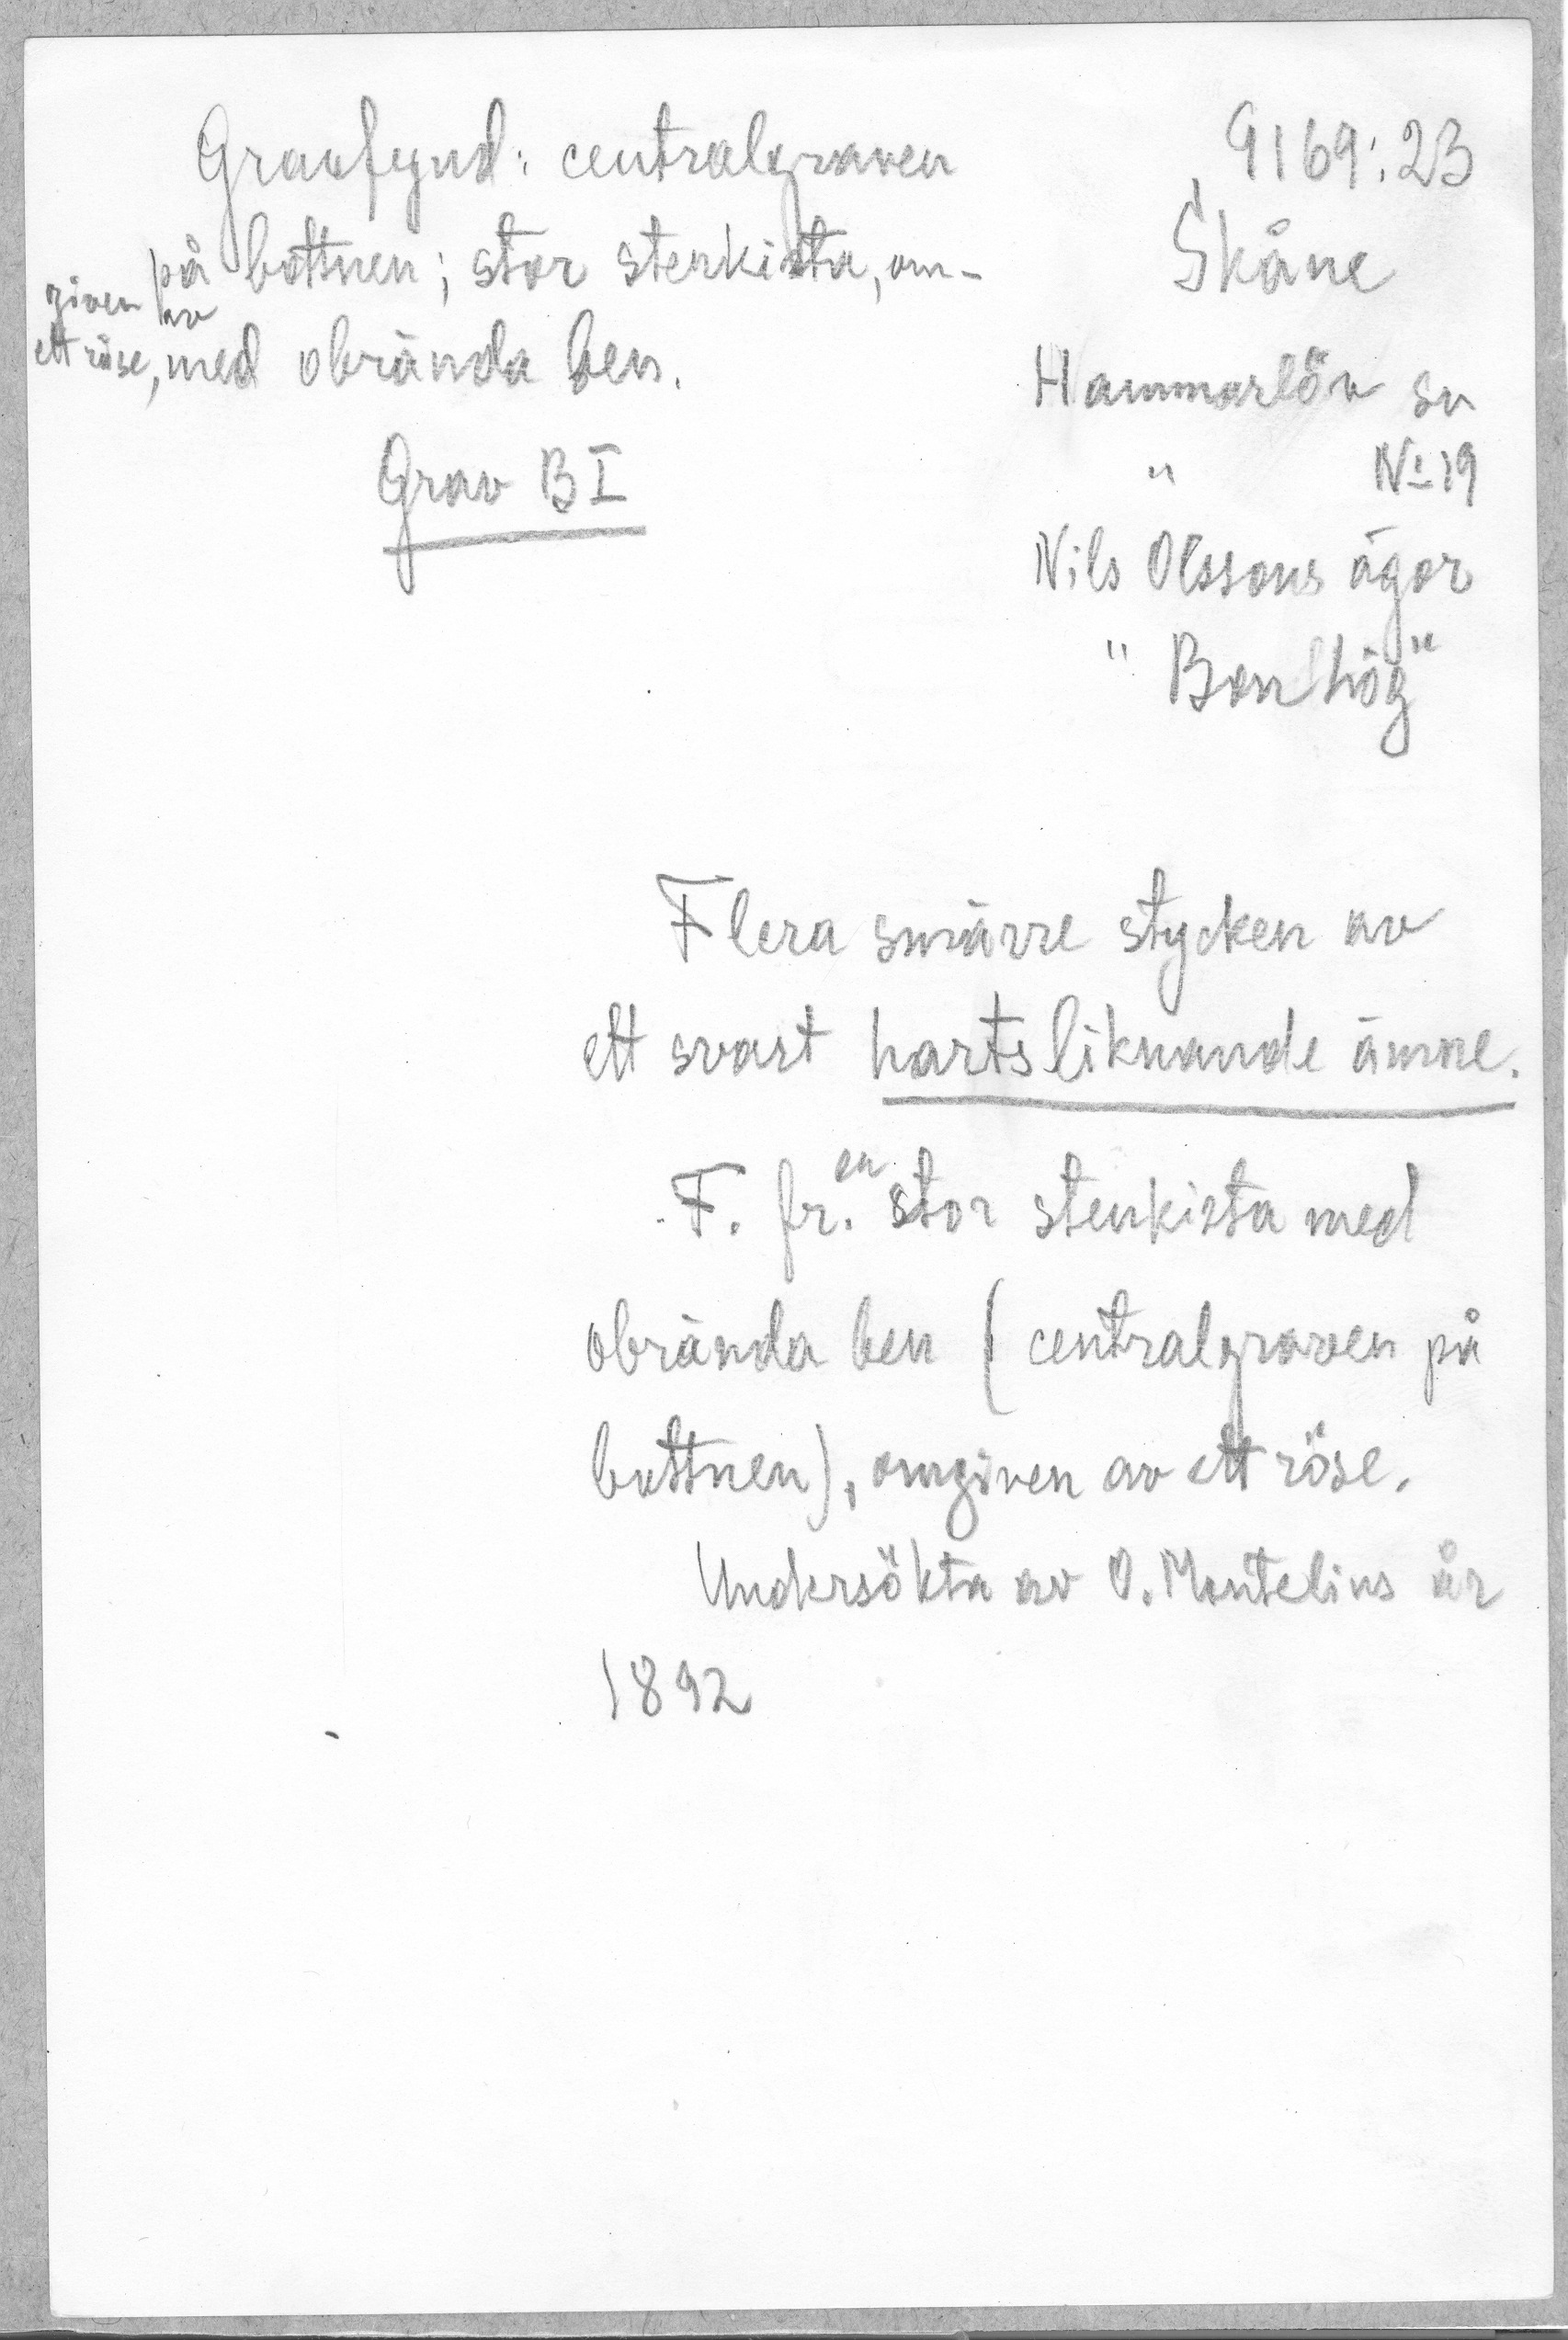 Gravfynd: centralgraven
på bottnen; stor stenkista, om-
given av
ett röse, med obrända ben.
Grav B I
9169:23
Skåne
Hammarlöv sn
" No 19
Nils Olssons ägor
"Bonhög"
Flera smärre stycken av
ett svart hartsliknande ämne.
F. fr. en stor stenkista med
obrända ben (centralgraven på
bottnen), omgiven av ett röse.
Undersökta av O. Montelius år
1892